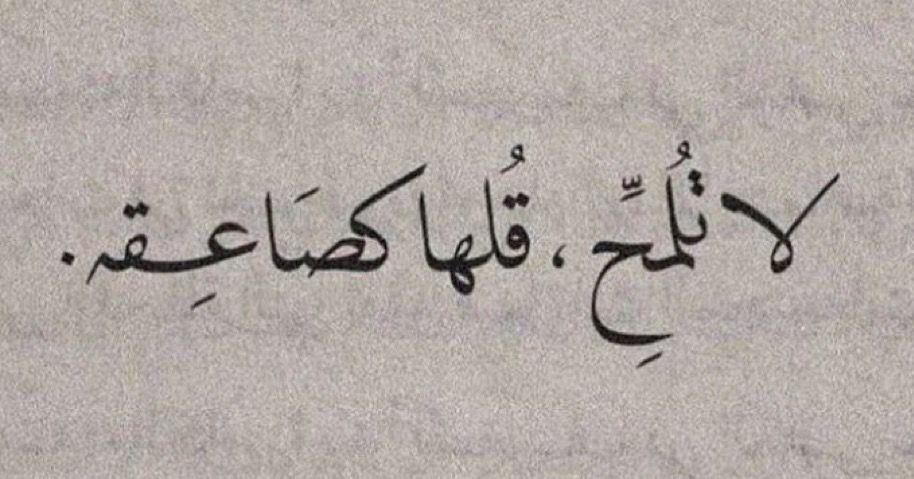 لا تُلمِّح ، قُلها كصَاعِقه .